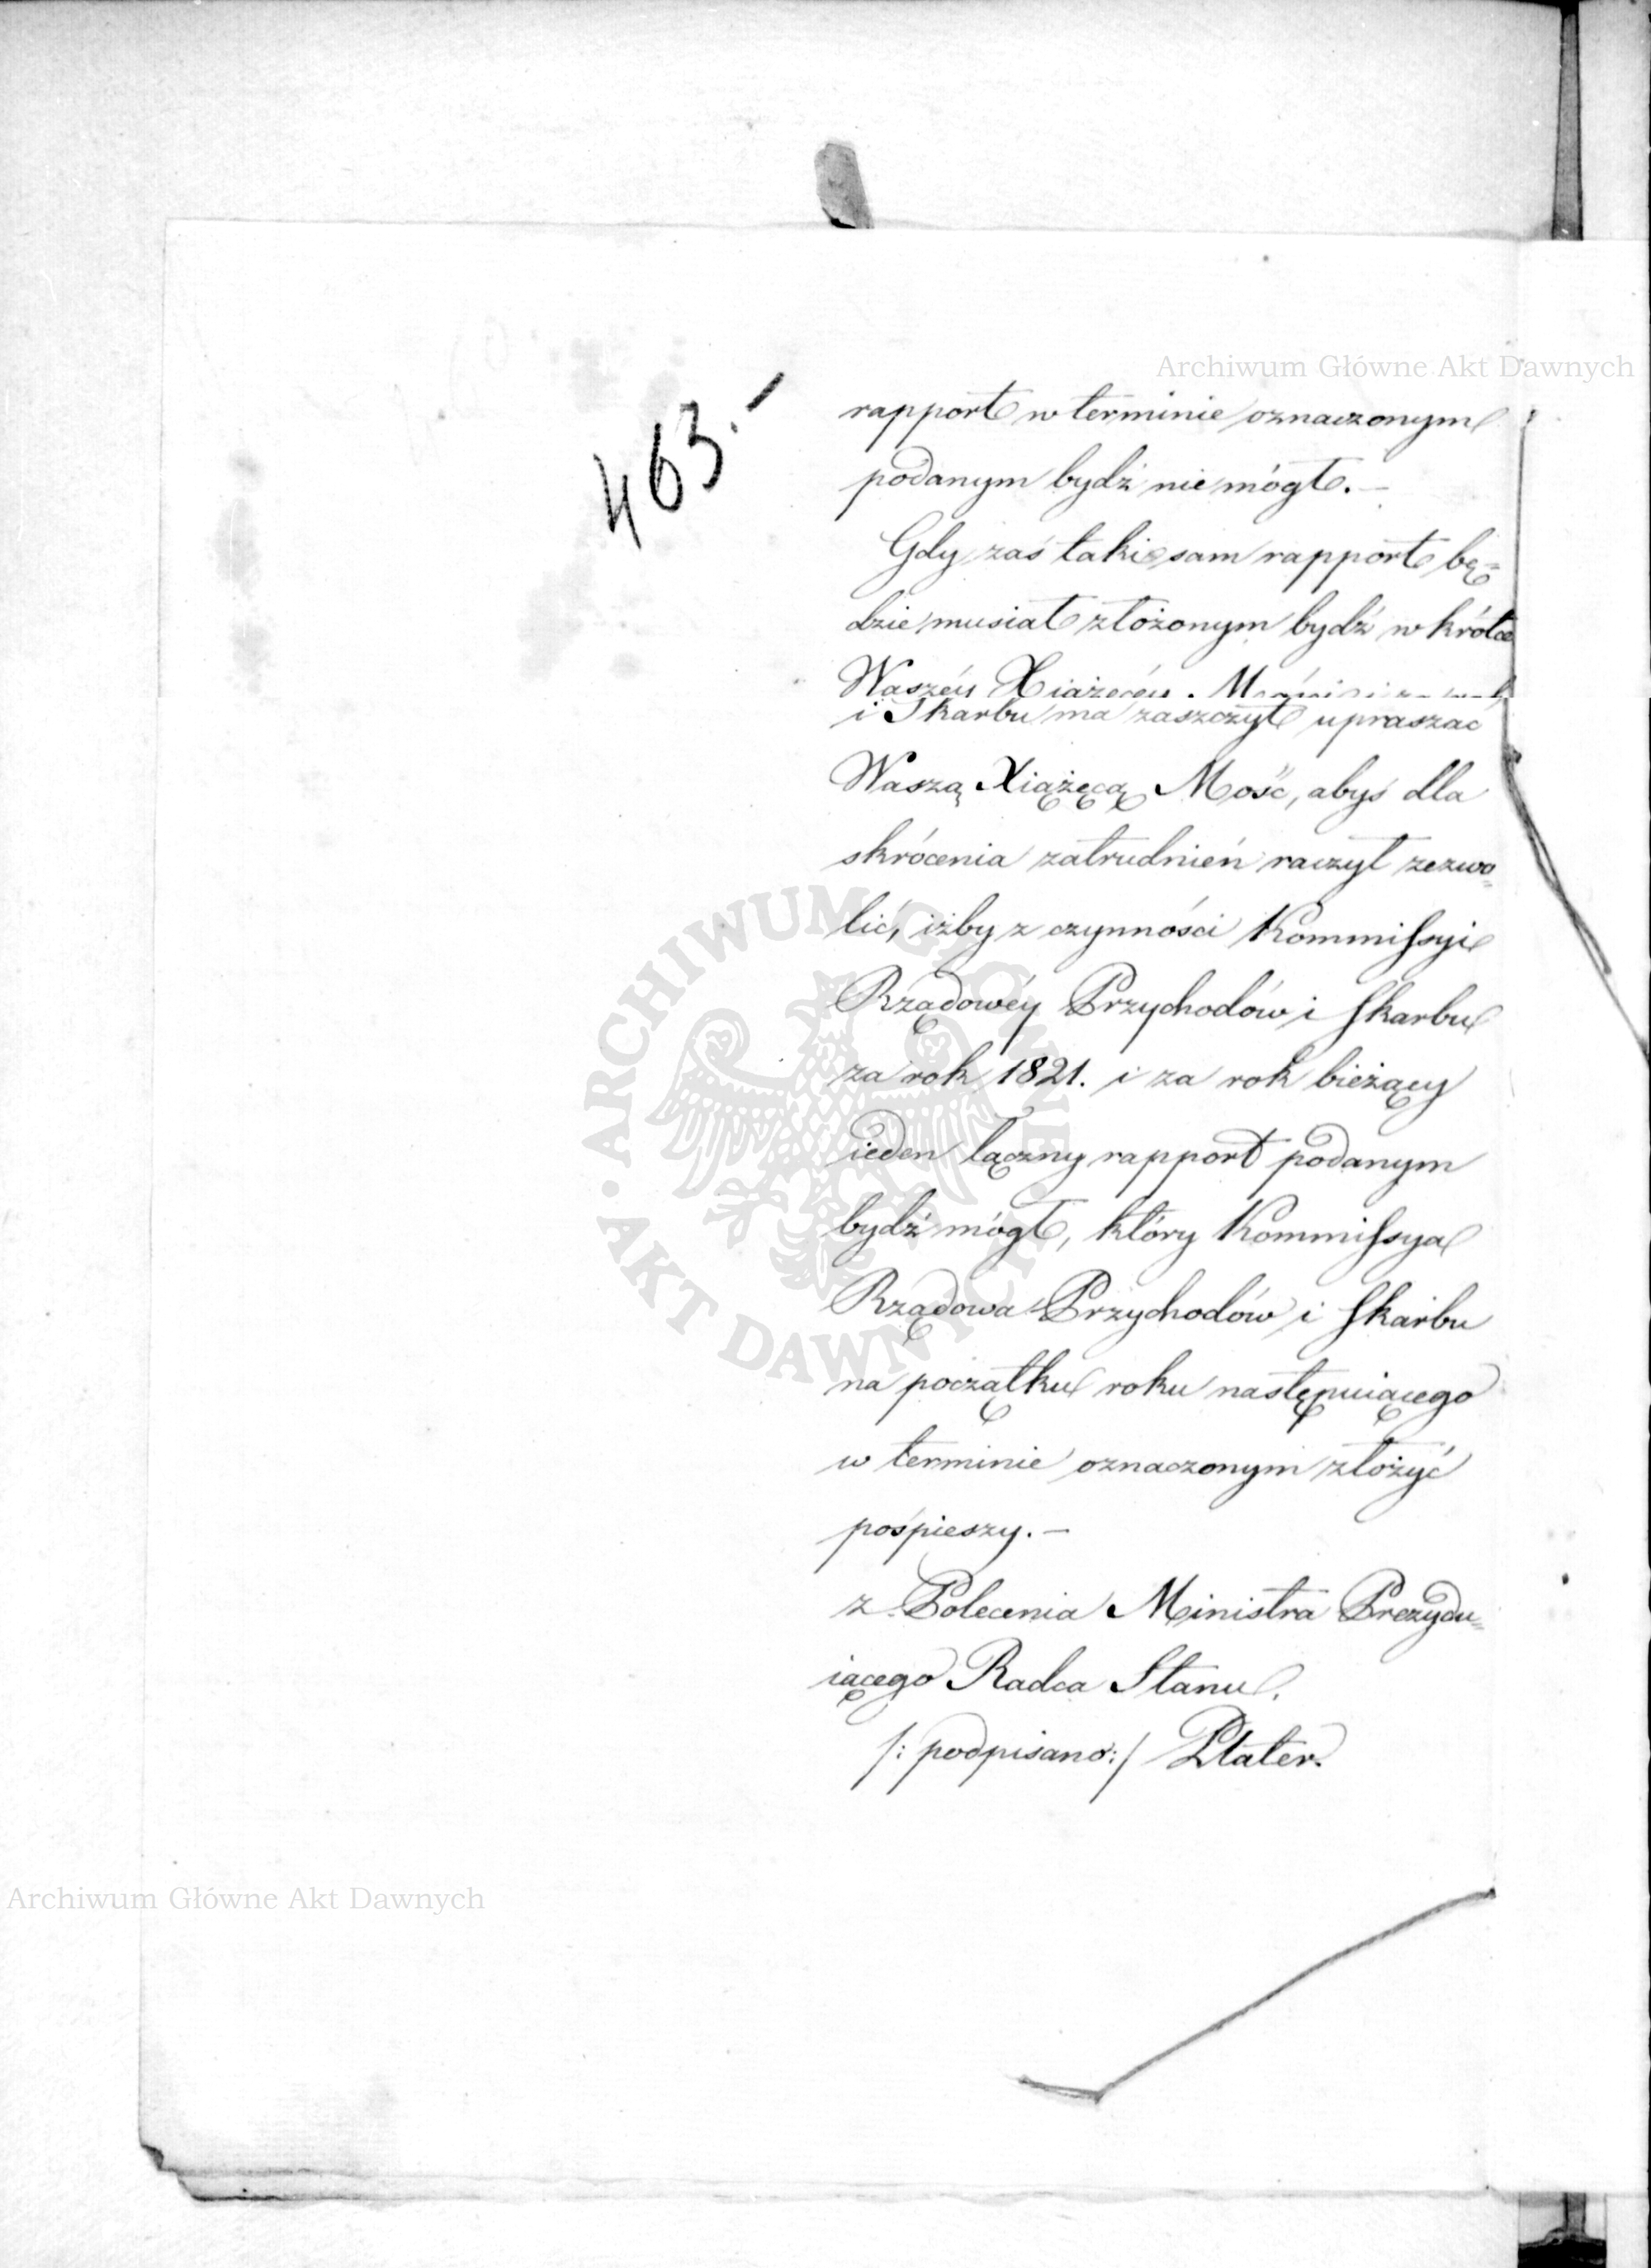 Archiwum Główne Akt Dawnych
463.-
rapport w terminie oznaczonym
podanym bydź nie mógł. –
Gdy zaś taki sam rapport bę=
dzie musiał złożonym bydź w krótce
Waszéy Xiążęcéy
i Skarbu ma zaszczyt upraszać
Waszą Xiążęcą Mość, abyś dla
skrócenia zatrudnień raczył zezwo=
lić, iżby z czynności Kommissyi
Rządowéy Przychodów i Skarbu
za rok 1821. i za rok bieżący
ieden łączny rapport podanym
bydź mógł, który Kommissya
Rządowa Przychodów i Skarbu
na początku roku następuiącego
w terminie oznaczonym złożyć
pośpieszy. –
z Polecenia Ministra Prezydu=
iącego Radca Stanu.
/: podpisano :/ Plater.
ARCHIWUM GŁÓWNE · AKT DAWNYCH ·
Archiwum Główne Akt Dawnych